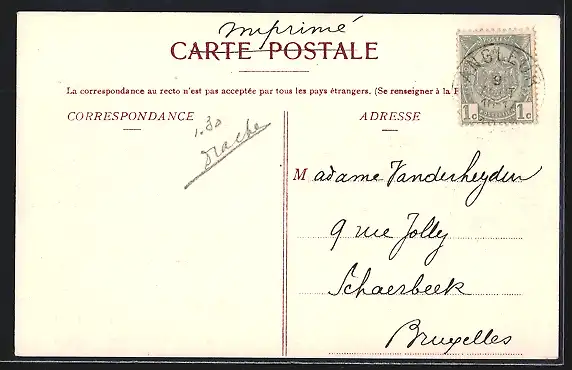 Imprimé
CARTE POSTALE
La correspondance au recto n'est pas acceptée par tous les pays étrangers. (Se renseigner à la P
CORRESPONDANCE
ADRESSE
1.30
Madame Vanderheyden
9 rue Jolly
Schaerbeek
Bruxelles
POSTES
ANGLEUR
9
AOUT
1c 1c